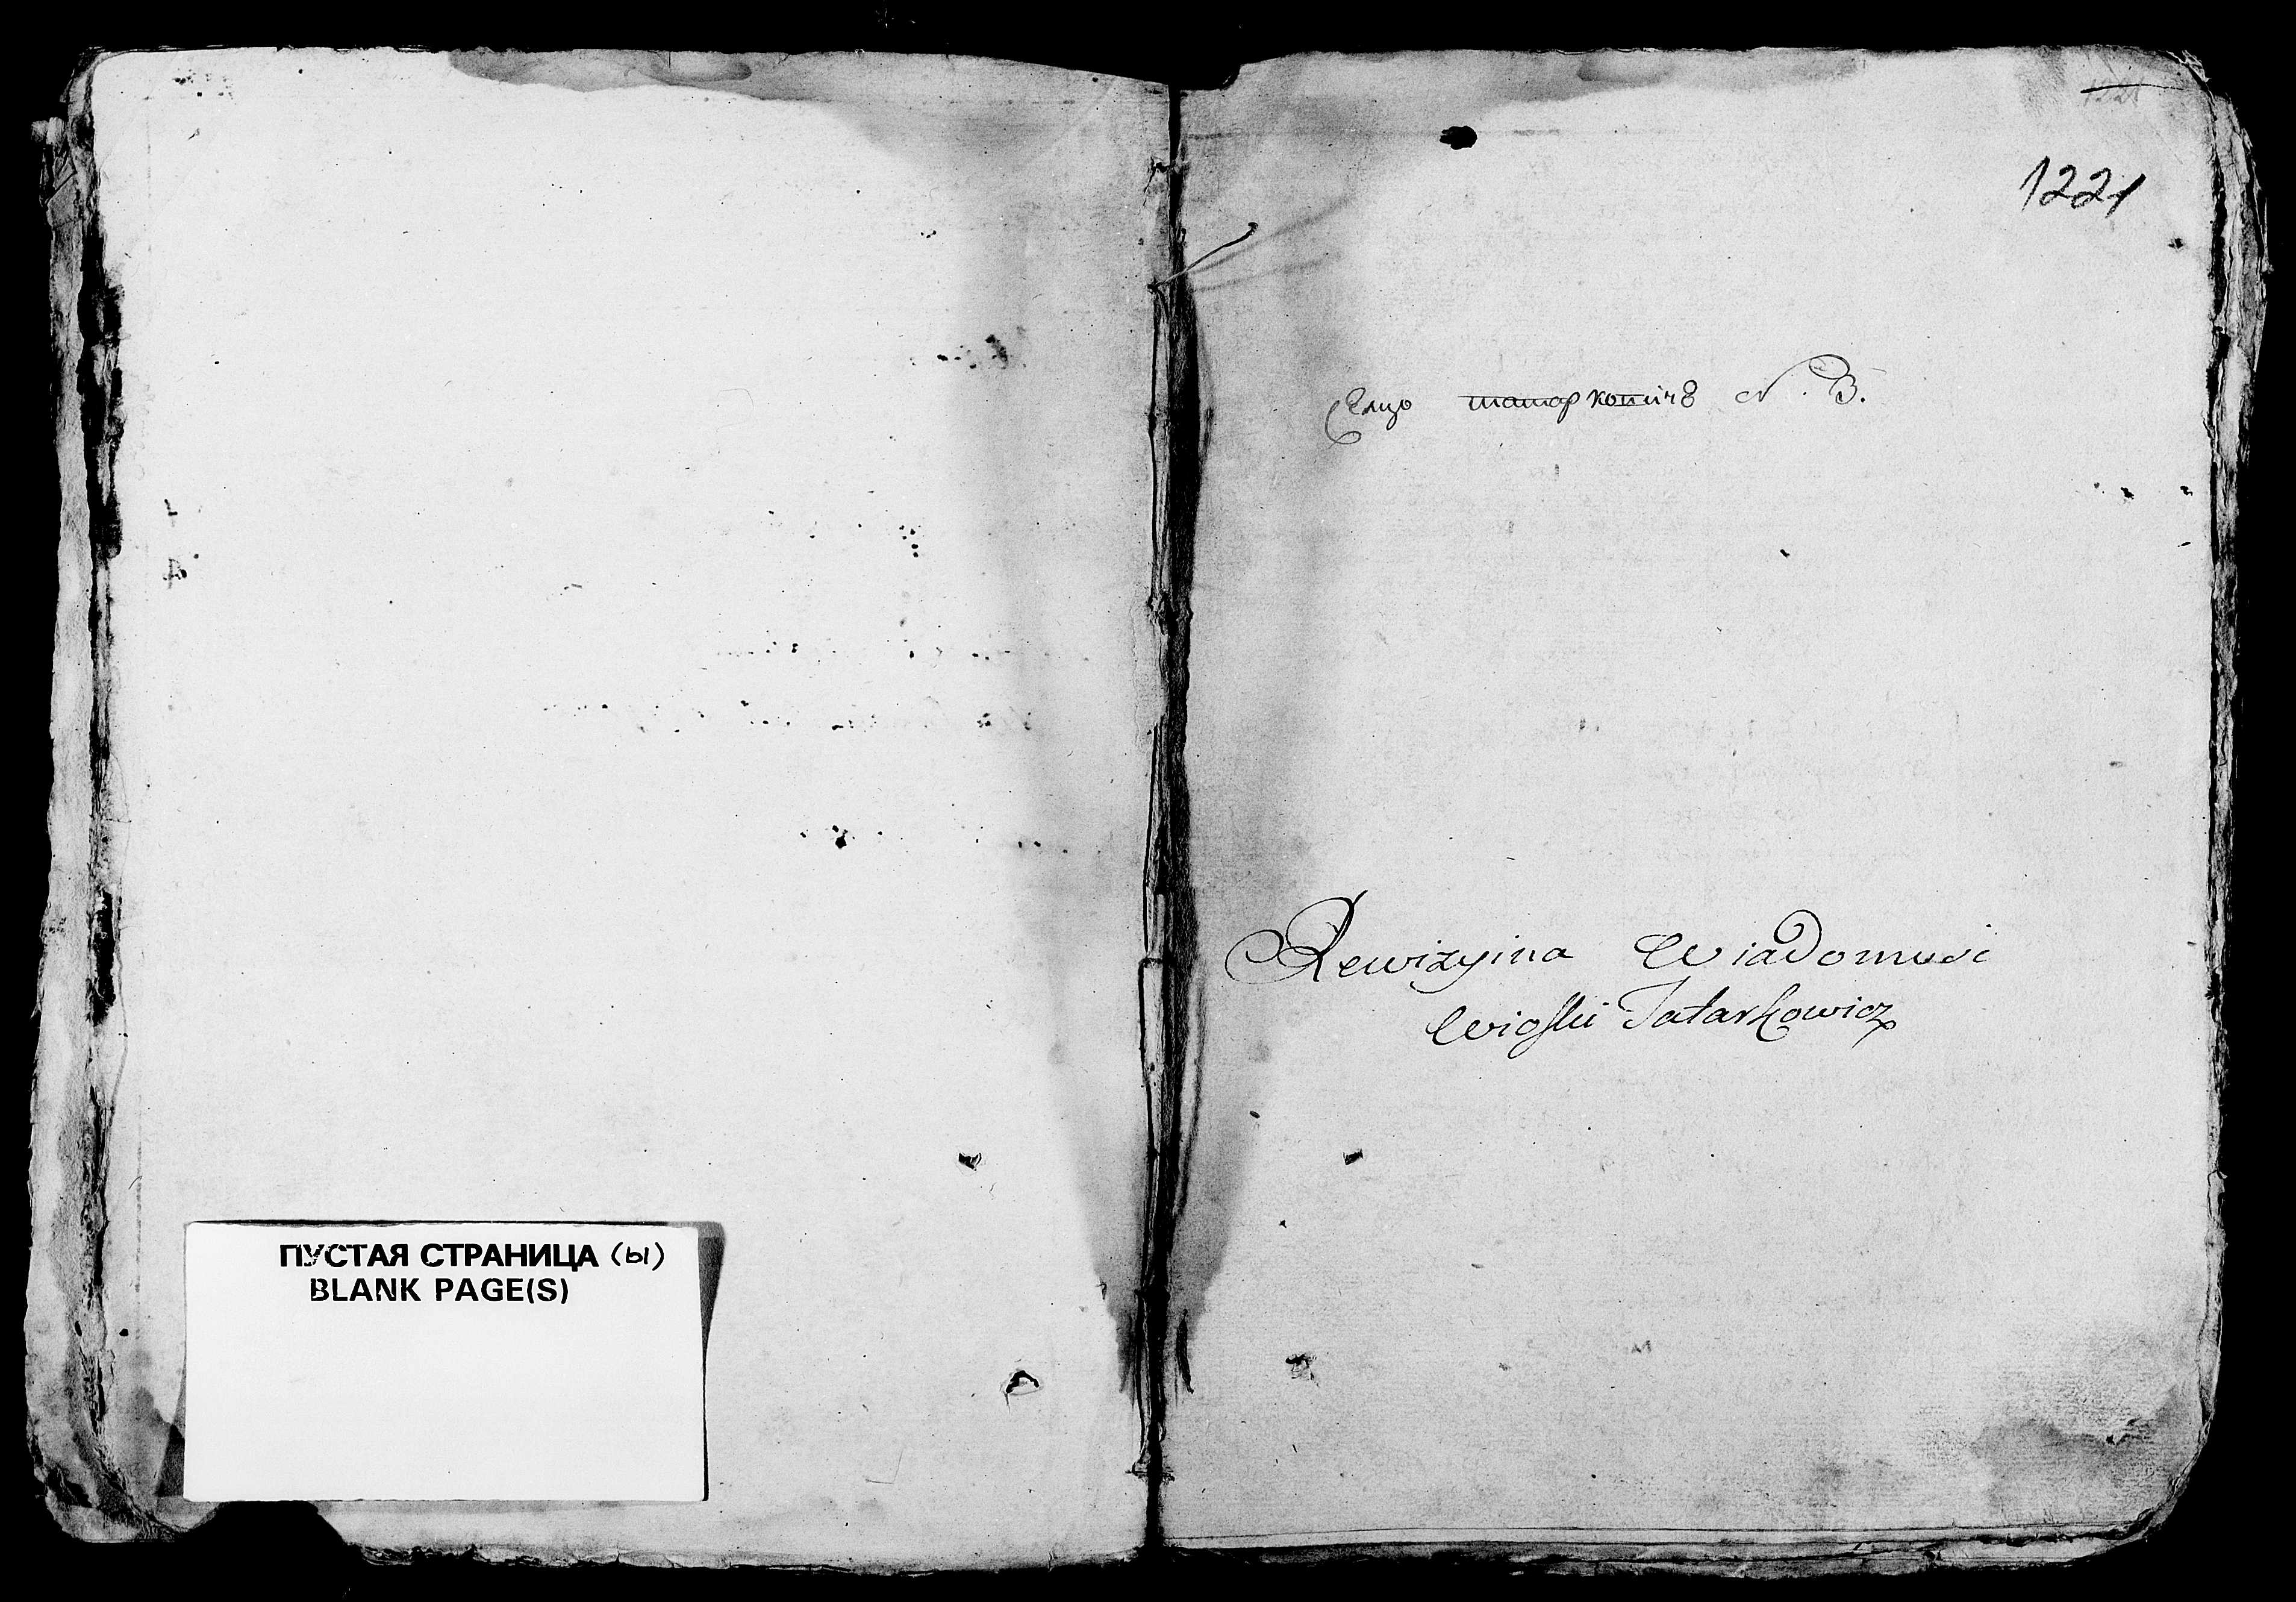 ПУСТАЯ СТРАНИЦА (ы)
BLANK PAGE(S)
1221
татаркович N. B.
Rewizyina Wiadomość
Wioski Tatarkowicz